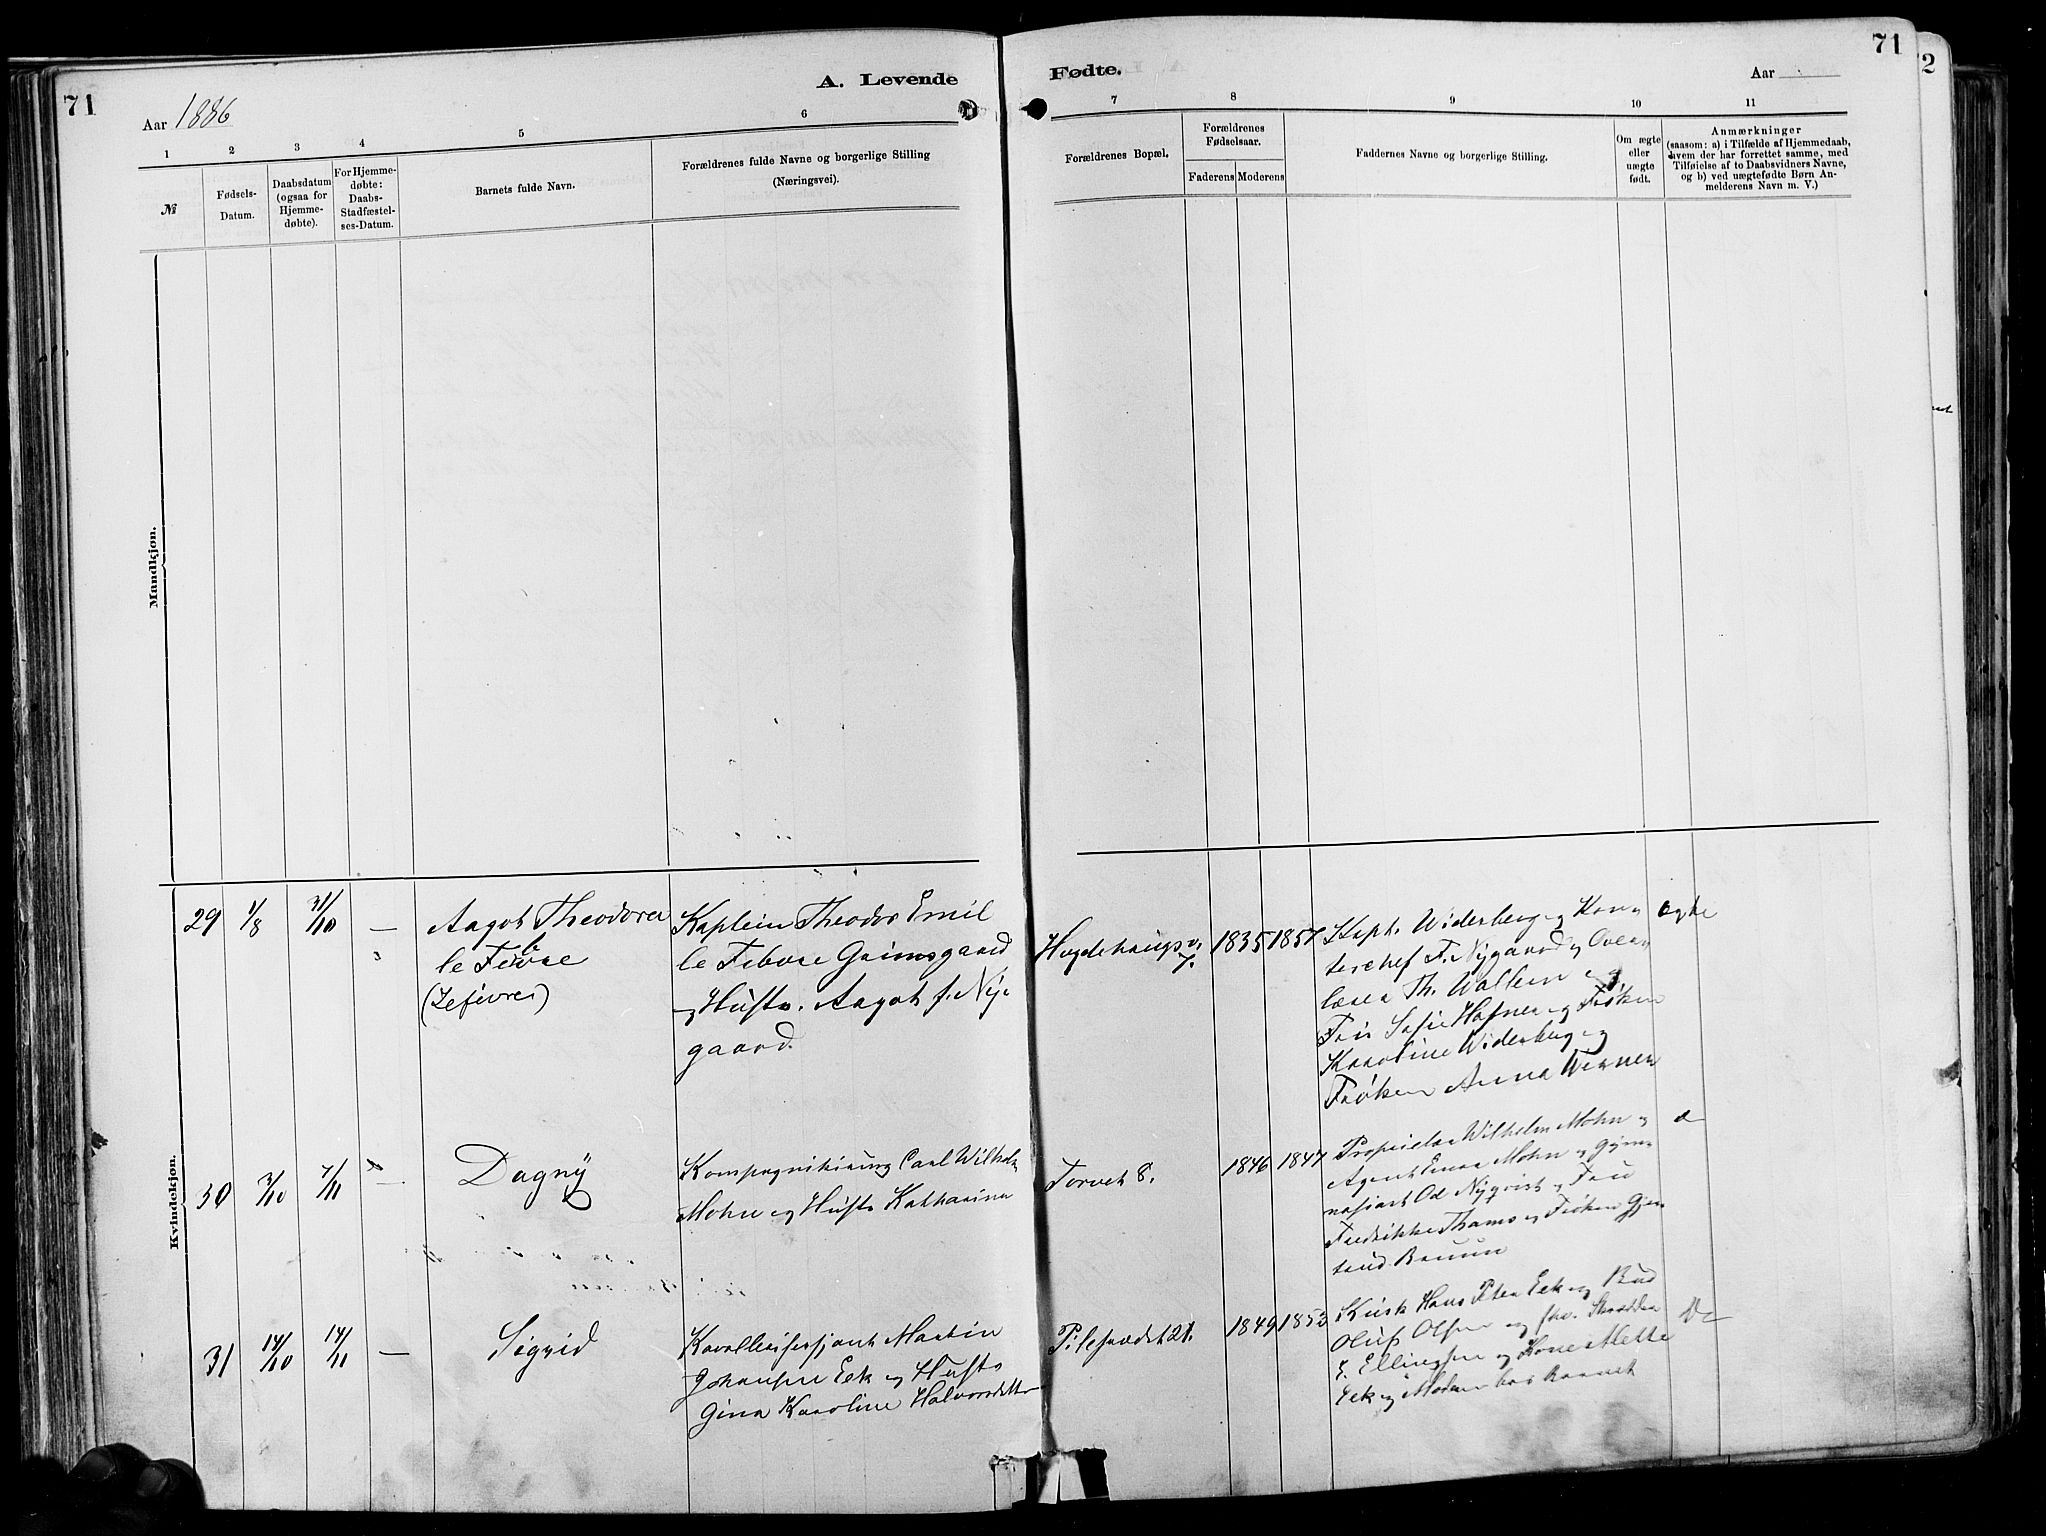 71
Aar 1886
A. Levende
1
2
3
4
5
6
№
Fødsels-
Datum.
Daabsdatum
(ogsaa for
Hjemme-
døbte).
For Hjemme-
døbte:
Daabs-
Stadfæstel-
ses-Datum.
Barnets fulde Navn.
Forældrenes fulde Navne og borgerlige Stilling
(Næringsvei).
Mandkjøn.
Kvindekjøn.
29 1/8 31/10 — Aagot Theodora
le Febvre
(Lefèvre)
Kaptein Theodor Emil
le Febvre Grimsgaard
og Hustr. Aagot f. Ny-
gaard.
30 3/10 7/11 — Dagny
Kompagnikirurg Carl Wilhelm
Mohn og Hustr Katharina
31 14/10 14/11 — Sigrid
Kavallerisersjant Martin
Johansen Eek og Hustr
Gina Karoline Halvorsdatter
Fødte.
Aar
71
2
7
8
9
10
11
Forældrenes Bopæl.
Forældrenes
Fødselsaar.
Faderens
Moderens
Faddernes Navne og borgerlige Stilling.
Om ægte
eller
uægte
født.
Anmærkninger
(saasom: a) i Tilfælde af Hjemmedaab,
hvem der har forrettet samme, med
Tilføielse af to Daabsvidners Navne,
og b) ved uægtefødte Børn An-
melderens Navn m. V.)
Hegdehaugsv.
7.
1835 1857
Kapt. Widerberg og
F. Nygaard og Over-
lærer Th. Wallem og
Fru Sofie Hafner og Frøken
Karoline Widerberg og
Frøken Anna Werner
ægte
Torvet 8. 1846 1847
Proprietær Wilhelm Mohn og
Agent Einar Mohn og Gym-
nasiast Od Nyqvist og Fru
Fredrikke Thams og Frøken Gjer-
trud Bruun
Pilestrædet 21. 1849 1853
Kusk Hans Peter Eek og Bud
Oluf Olsen og Skrædder
E. Ellingsen og Kone Mette
Eek og Moderen bar Barnet
Do